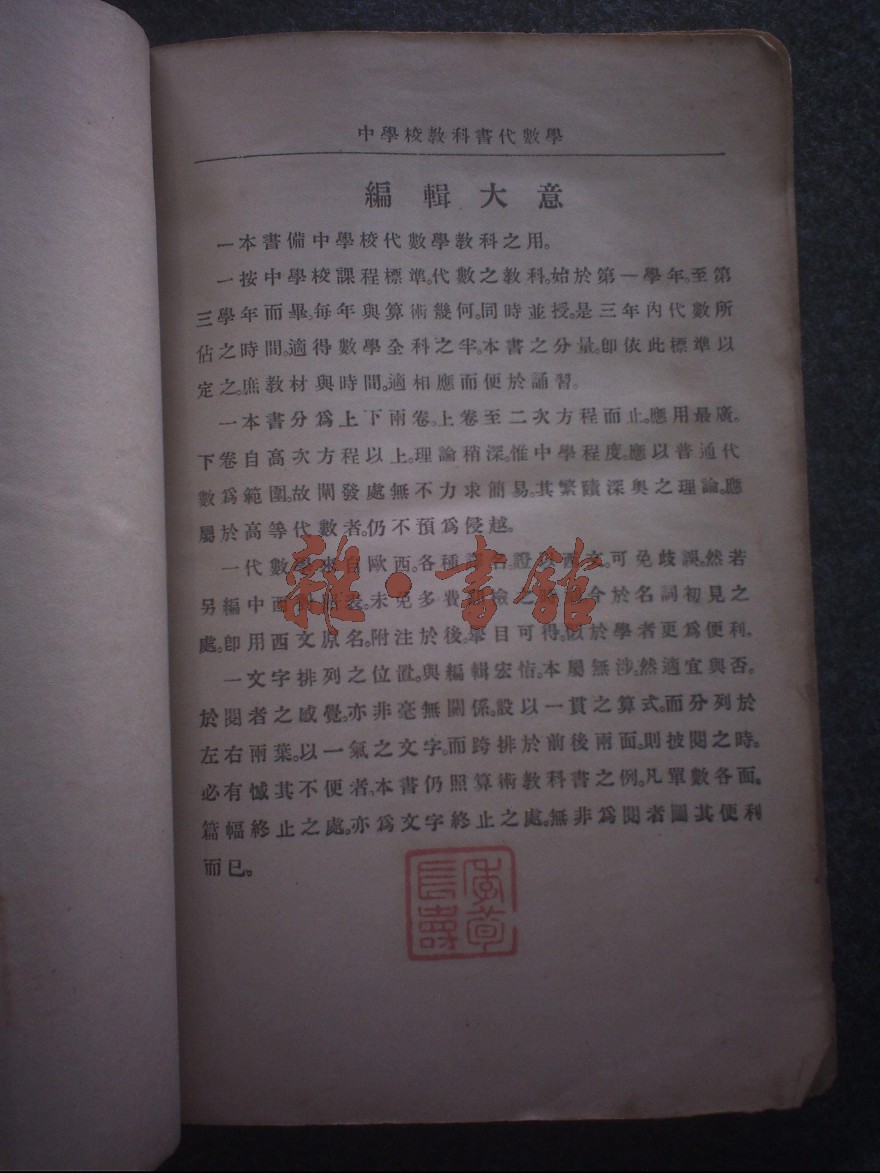 中學校教科書代數學
編輯大意
一本書備中學校代數學教科之用。
一按中學校課程標準。代數之教科。始於第一學年。至第
三學年而畢。每年與算術幾何。同時並授。是三年內代數所
佔之時間。適得數學全科之半。本書之分量。卽依此標準以
定之。庶教材與時間。適相應而便於誦習。
一本書分爲上下兩卷。上卷至二次方程而止。應用最廣。
下卷自高次方程以上。理論稍深。惟中學程度。應以普通代
數爲範圍。故闡發處無不力求簡易。其繁賾深奧之理論。應
屬於高等代數者。仍不預爲侵越。
一代數學來自歐西。各種名。證以西文。可免歧誤。然若
另編中西表。未免多費檢之。今於名詞初見之
處。卽用西文原名。附注於後。舉目可得。似於學者更爲便利。
一文字排列之位置。與編輯宏恉。本屬無涉。然適宜與否。
於閱者之感覺。亦非毫無關係。設以一貫之算式。而分列於
左右兩葉。以一氣之文字。而跨排於前後兩面。則披閱之時。
必有憾其不便者。本書仍照算術教科書之例。凡單數各面。
篇幅終止之處。亦爲文字終止之處。無非爲閱者圖其便利
而已。
雜·書館